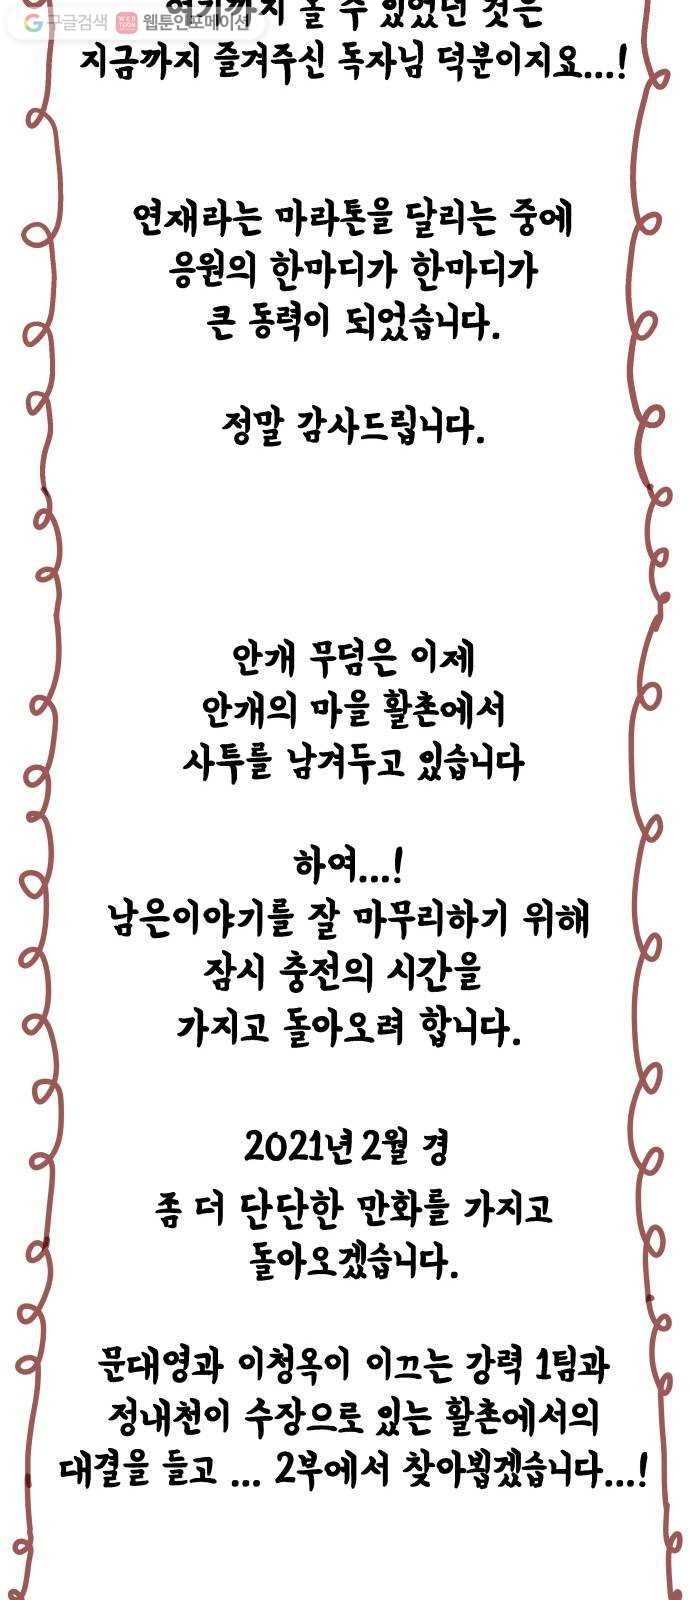 구글검색 웹툰인포메이션
여기까지 올 수 있었던 것은
지금까지 즐겨주신 독자님 덕분이지요...!
연재라는 마라톤을 달리는 중에
응원의 한마디가 한마디가
큰 동력이 되었습니다.
정말 감사드립니다.
안개 무덤은 이제
안개의 마을 활촌에서
사투를 남겨두고 있습니다
하여...!
남은이야기를 잘 마무리하기 위해
잠시 충전의 시간을
가지고 돌아오려 합니다.
2021년 2월 경
좀 더 단단한 만화를 가지고
돌아오겠습니다.
문대영과 이청옥이 이끄는 강력 1팀과
정내천이 수장으로 있는 활촌에서의
대결을 들고 ... 2부에서 찾아뵙겠습니다...!